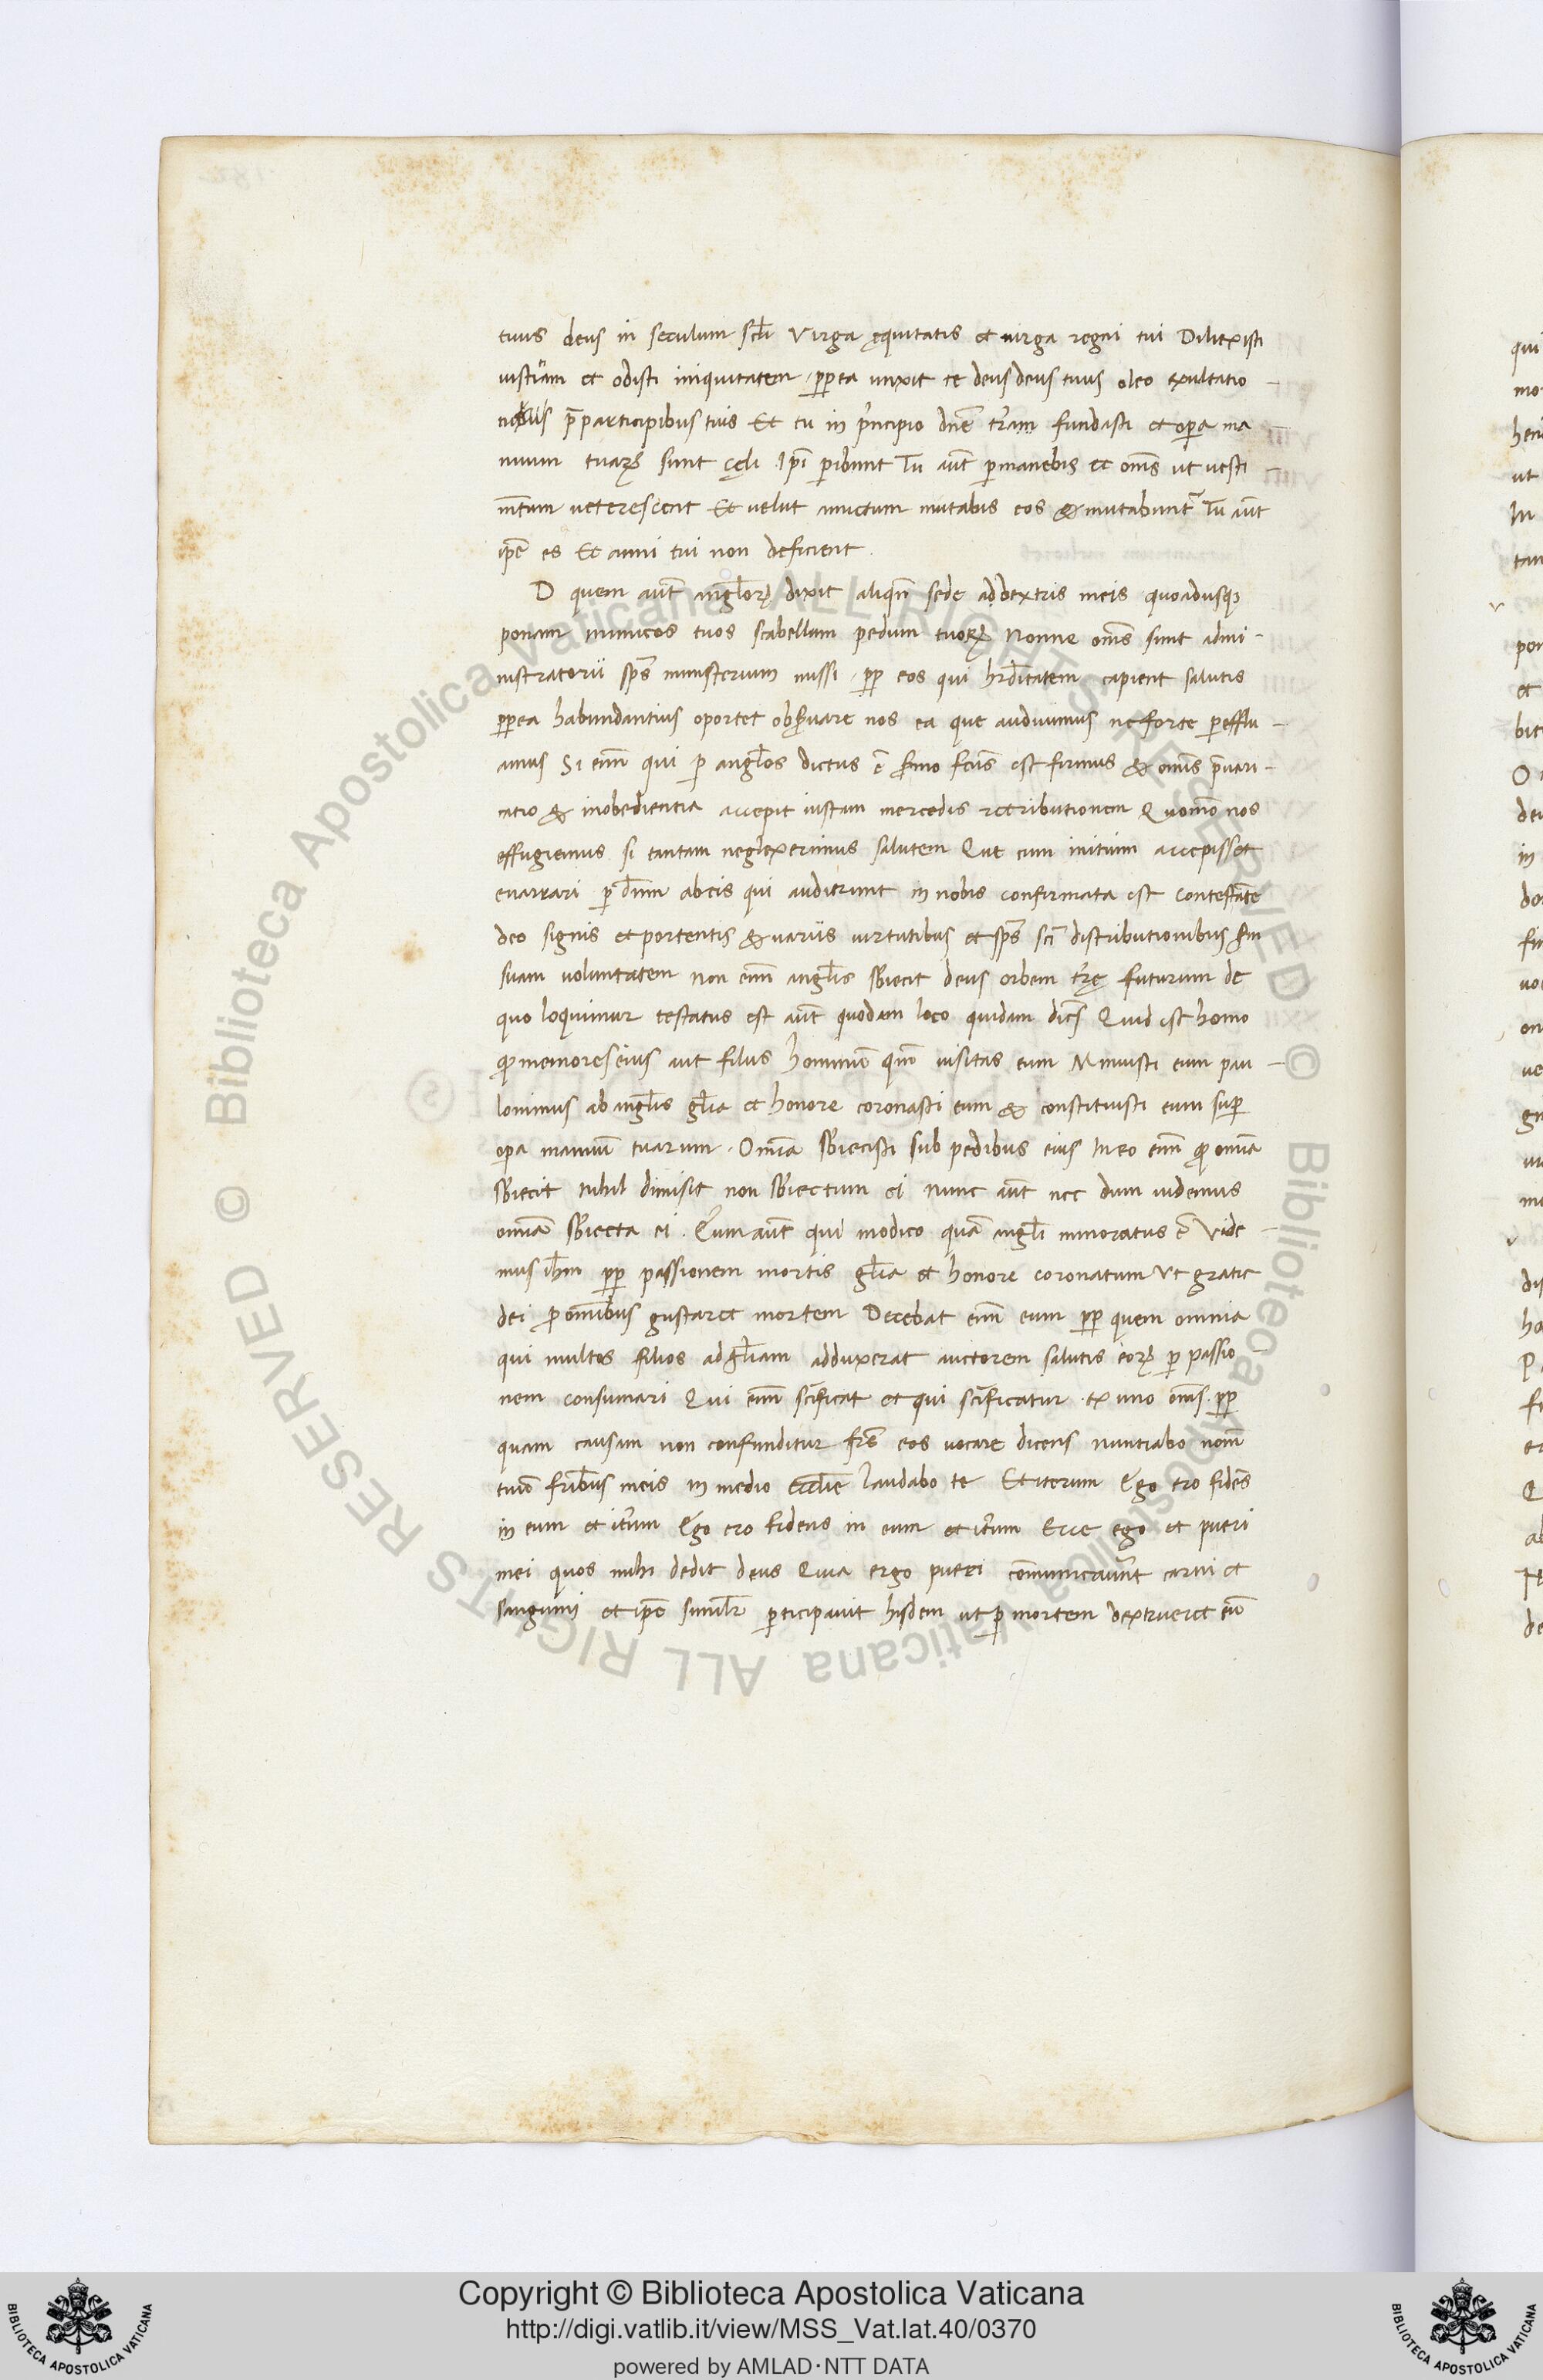 tuus deus in seculum scłi Virga ęquitatis et uirga regni tui Dilexisti
iustiam et odisti iniquitatem. ꝓpterea unxit te deus deus tuus oleo exultatio -
p̄ participibus tuis Et tu in pͥncipio dn̄e tr̄am fundasti et oꝑa ma -
nuum tuaꝝ sunt cęli Ip̄i ꝑibunt Tu aūt ꝑmanebis et om̄s ut uesti -
m̄tum ueterescent Et uelut amictum mutabis eos & mutabunt᷑ Tu aūt
ip̄e es Et anni tui non deficient.
D quem aūt angl̄oꝝ dixit aliqn̄ sede ad dextris meis quoadusqꝫ
ponam inimicos tuos scabellum pedum tuoꝝ Nonne om̄s sunt admi -
nistratorii sp̄s ministerium missi. ꝓp eos qui hr̄ditatem capient salutis
ꝓpea habundantius oportet obẜuare nos ea que audiuimus ne forte ꝑefflu -
amus Si em̄ qui ꝑ angłos dictus ē ẜmo fc̄us est firmus & om̄is p̄uari -
catio & inobedientia accepit iustam mercedis retributionem Quom̄o nos
effugiemus si tantam neglexerimus salutem Que cum initium accepisset
enarrari ꝑ dn̄m ab eis qui audierunt in nobis confirmata est contestāte
deo signis et portentis & uariis uirtutibus et sp̄s sc̄i distributionibus ẜm
suam voluntatem non em̄ angłis sb̄iecit deus orbem tr̄ę futurum de
quo loquimur testatus est aūt quodam loco quidam dic̄s Quid est homo
qđ memores eius aut filius hominis qm̄ uisitas eum Minuisti eum pau -
lominus ab angłis gła et honore coronasti eum & constituisti eum suꝑ
oꝑa manuū tuarum. Omīa sb̄iecisti sub pedibus eius In eo em̄ qđ omīa
sb̄iecit nihil dimisit non sb̄iectum ei Nunc aūt nec dum uidemus
omīa sb̄iecta ei. Eum aūt qui modico quā angłi minoratus ē Vide -
mus ihm̄ ꝓp passionem mortis głia et honore coronatum Ut gratie
dei ꝓ omībus gustaret mortem Decebat em̄ eum ꝓp quem omnia
qui multos filios ad głiam adduxerat auctorem salutis eoꝝ ꝑ passio -
nem consumari Qui em̄ sc̄ificat et qui sc̄ificatur. ex uno om̄s. ꝓp
quam causam non confunditur fr̄s eos uocare dicens Nuntiabo nom̄
tuū fr̄ibus meis in medio ecc̄lie laudabo te Et iterum Ego ero fidēs
in eum et itͤum Ego ero fidens in eum et itͤum Ecce ego et pueri
mei quos mihi dedit deus Quia ergo pueri com̄unicauer̄t carni et
sanguini et ip̄e similr̄ ꝑticipauit hisdem ut ꝑ mortem dextrueret eū
Copyright © Biblioteca Apostolica Vaticana
http://digi.vatlib.it/view/MSS_Vat.lat.40/0370
powered by AMLAD·NTT DATA